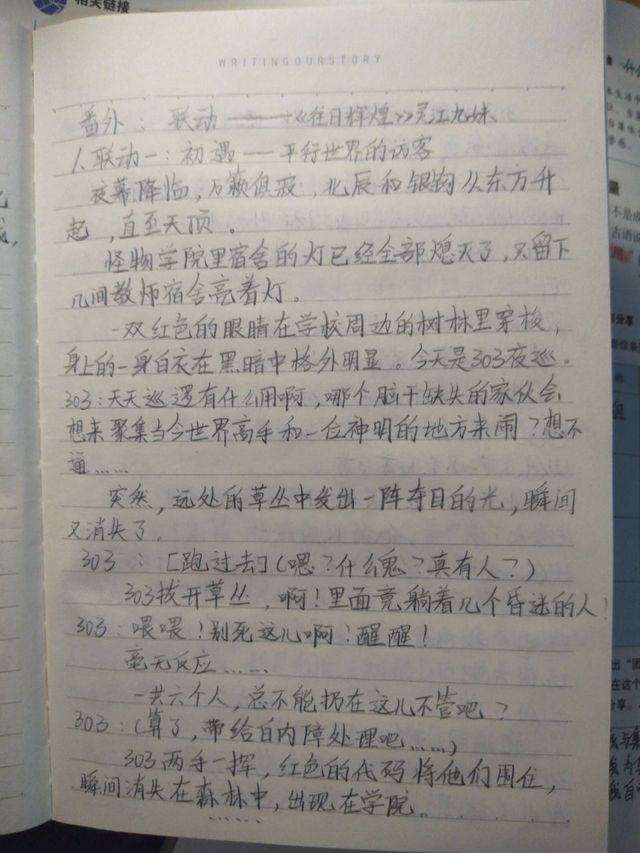 相关链接
WRITINGOURSTORY
番外：联动——《往日辉煌》灵江九妹
1.联动一：初遇——平行世界的访客
夜幕降临，万籁俱寂，北辰和银钩从东方升
起，直至天顶。
怪物学院里宿舍的灯已经全部熄灭了，只留下
几间教师宿舍亮着灯。
一双红色的眼睛在学校周边的树林里穿梭，
身上的一身白衣在黑暗中格外明显。今天是303夜巡。
303：天天巡逻有什么用啊，哪个脑干缺失的家伙会
想来聚集当今世界高手和一位神明的地方来闹？想不
通……
突然，远处的草丛中发出一阵夺目的光，瞬间
又消失了。
303：[跑过去]（嗯？什么鬼？真有人？）
303拔开草丛，啊！里面竟躺着几个昏迷的人！
303：喂喂！别死这儿啊！醒醒！
毫无反应……
一共六个人，总不能扔在这儿不管吧？
303：（算了，带给白内障处理吧……）
303两手一挥，红色的代码将他们围住，
瞬间消失在森林中，出现在学院。
……